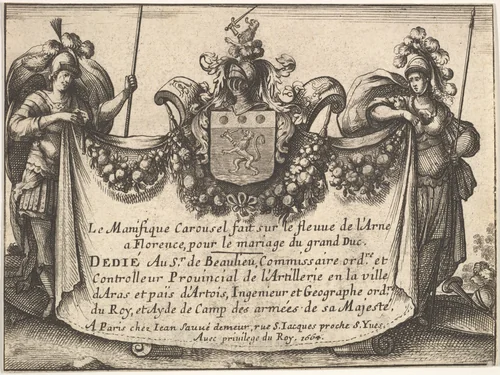 Le Manifique Carousel fait sur le fleuve de l'Arne
a Florence, pour le mariage du grand Duc.
DEDIE Au Sr. de Beaulieu, Commissaire ordre. et
Controlleur Prouincial de l'Artillerie en la ville
d'Aras et païs d'Artois, Ingenieur et Geographe ordre.
du Roy, et Ayde de Camp des armées de sa Majesté,
A Paris chez Iean Sauué demeur, rue S. Iacques proche S. Yues.
Auec priuilege du Roy, 1664.